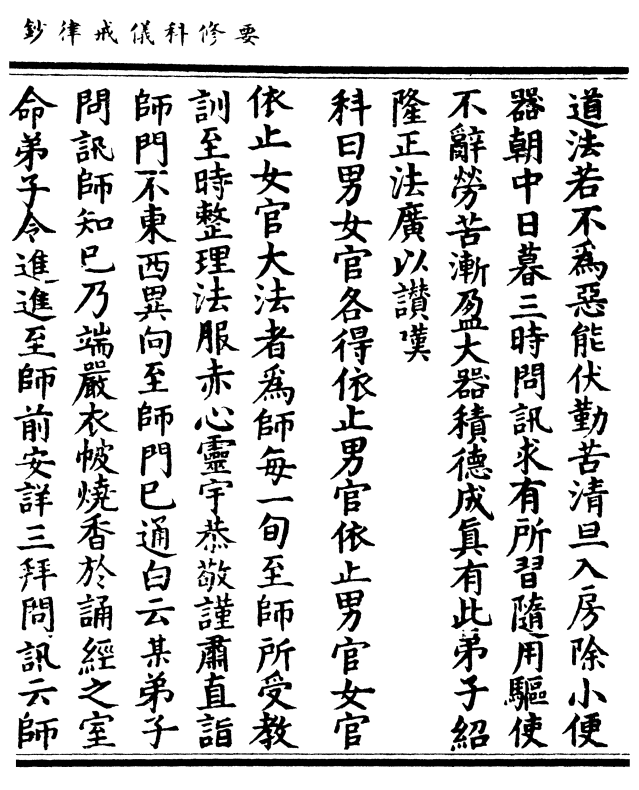 要修科儀戒律鈔
道法若不為惡能伏勤苦清旦入房除小便
器朝中日暮三時問訊求有所習隨用驅使
不辭勞苦漸盈大器積德成真有此弟子紹
隆正法廣以讚嘆
科曰男女官各得依止男官依止男官女官
依止女官大法者為師每一旬至師所受教
訓至時整理法服赤心靈宇恭敬謹肅直詣
師門不東西異向至師門已通白云某弟子
問訊師知已乃端嚴衣帔燒香於誦經之室
命弟子令進進至師前安詳三拜問訊云師